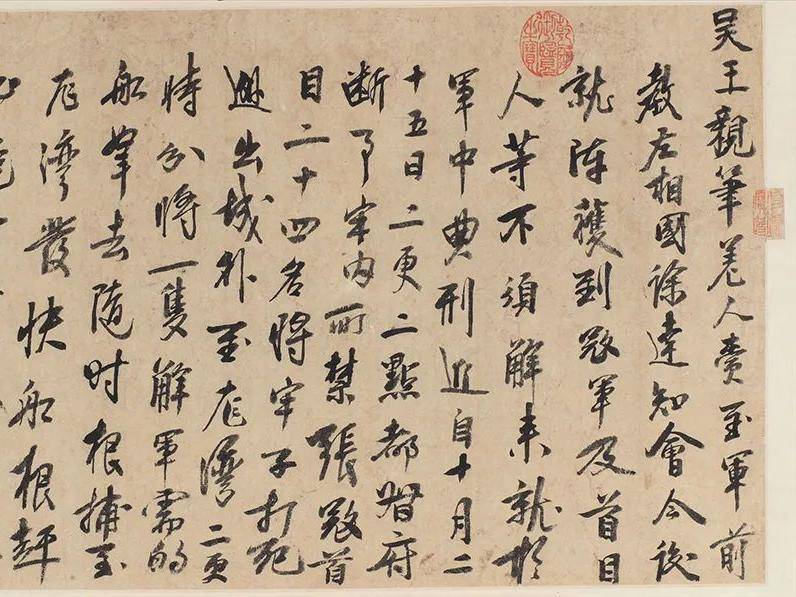 吴王親筆差人賫至軍前
教左相國徐達知會今後
就陣獲到寇軍及首目
人等不須解来就於
軍中典刑近自十月二
十五日二更二點都督府
断事牢内所禁張寇首
目二十四名將牢子打死
出城外至龙灣二更
時分將一隻解軍需的
船拏去随时根捕至
龙灣發快船根趕